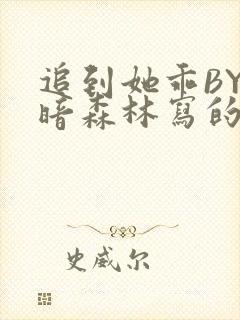 追到她乖BY
暗森林寫的
史威尔